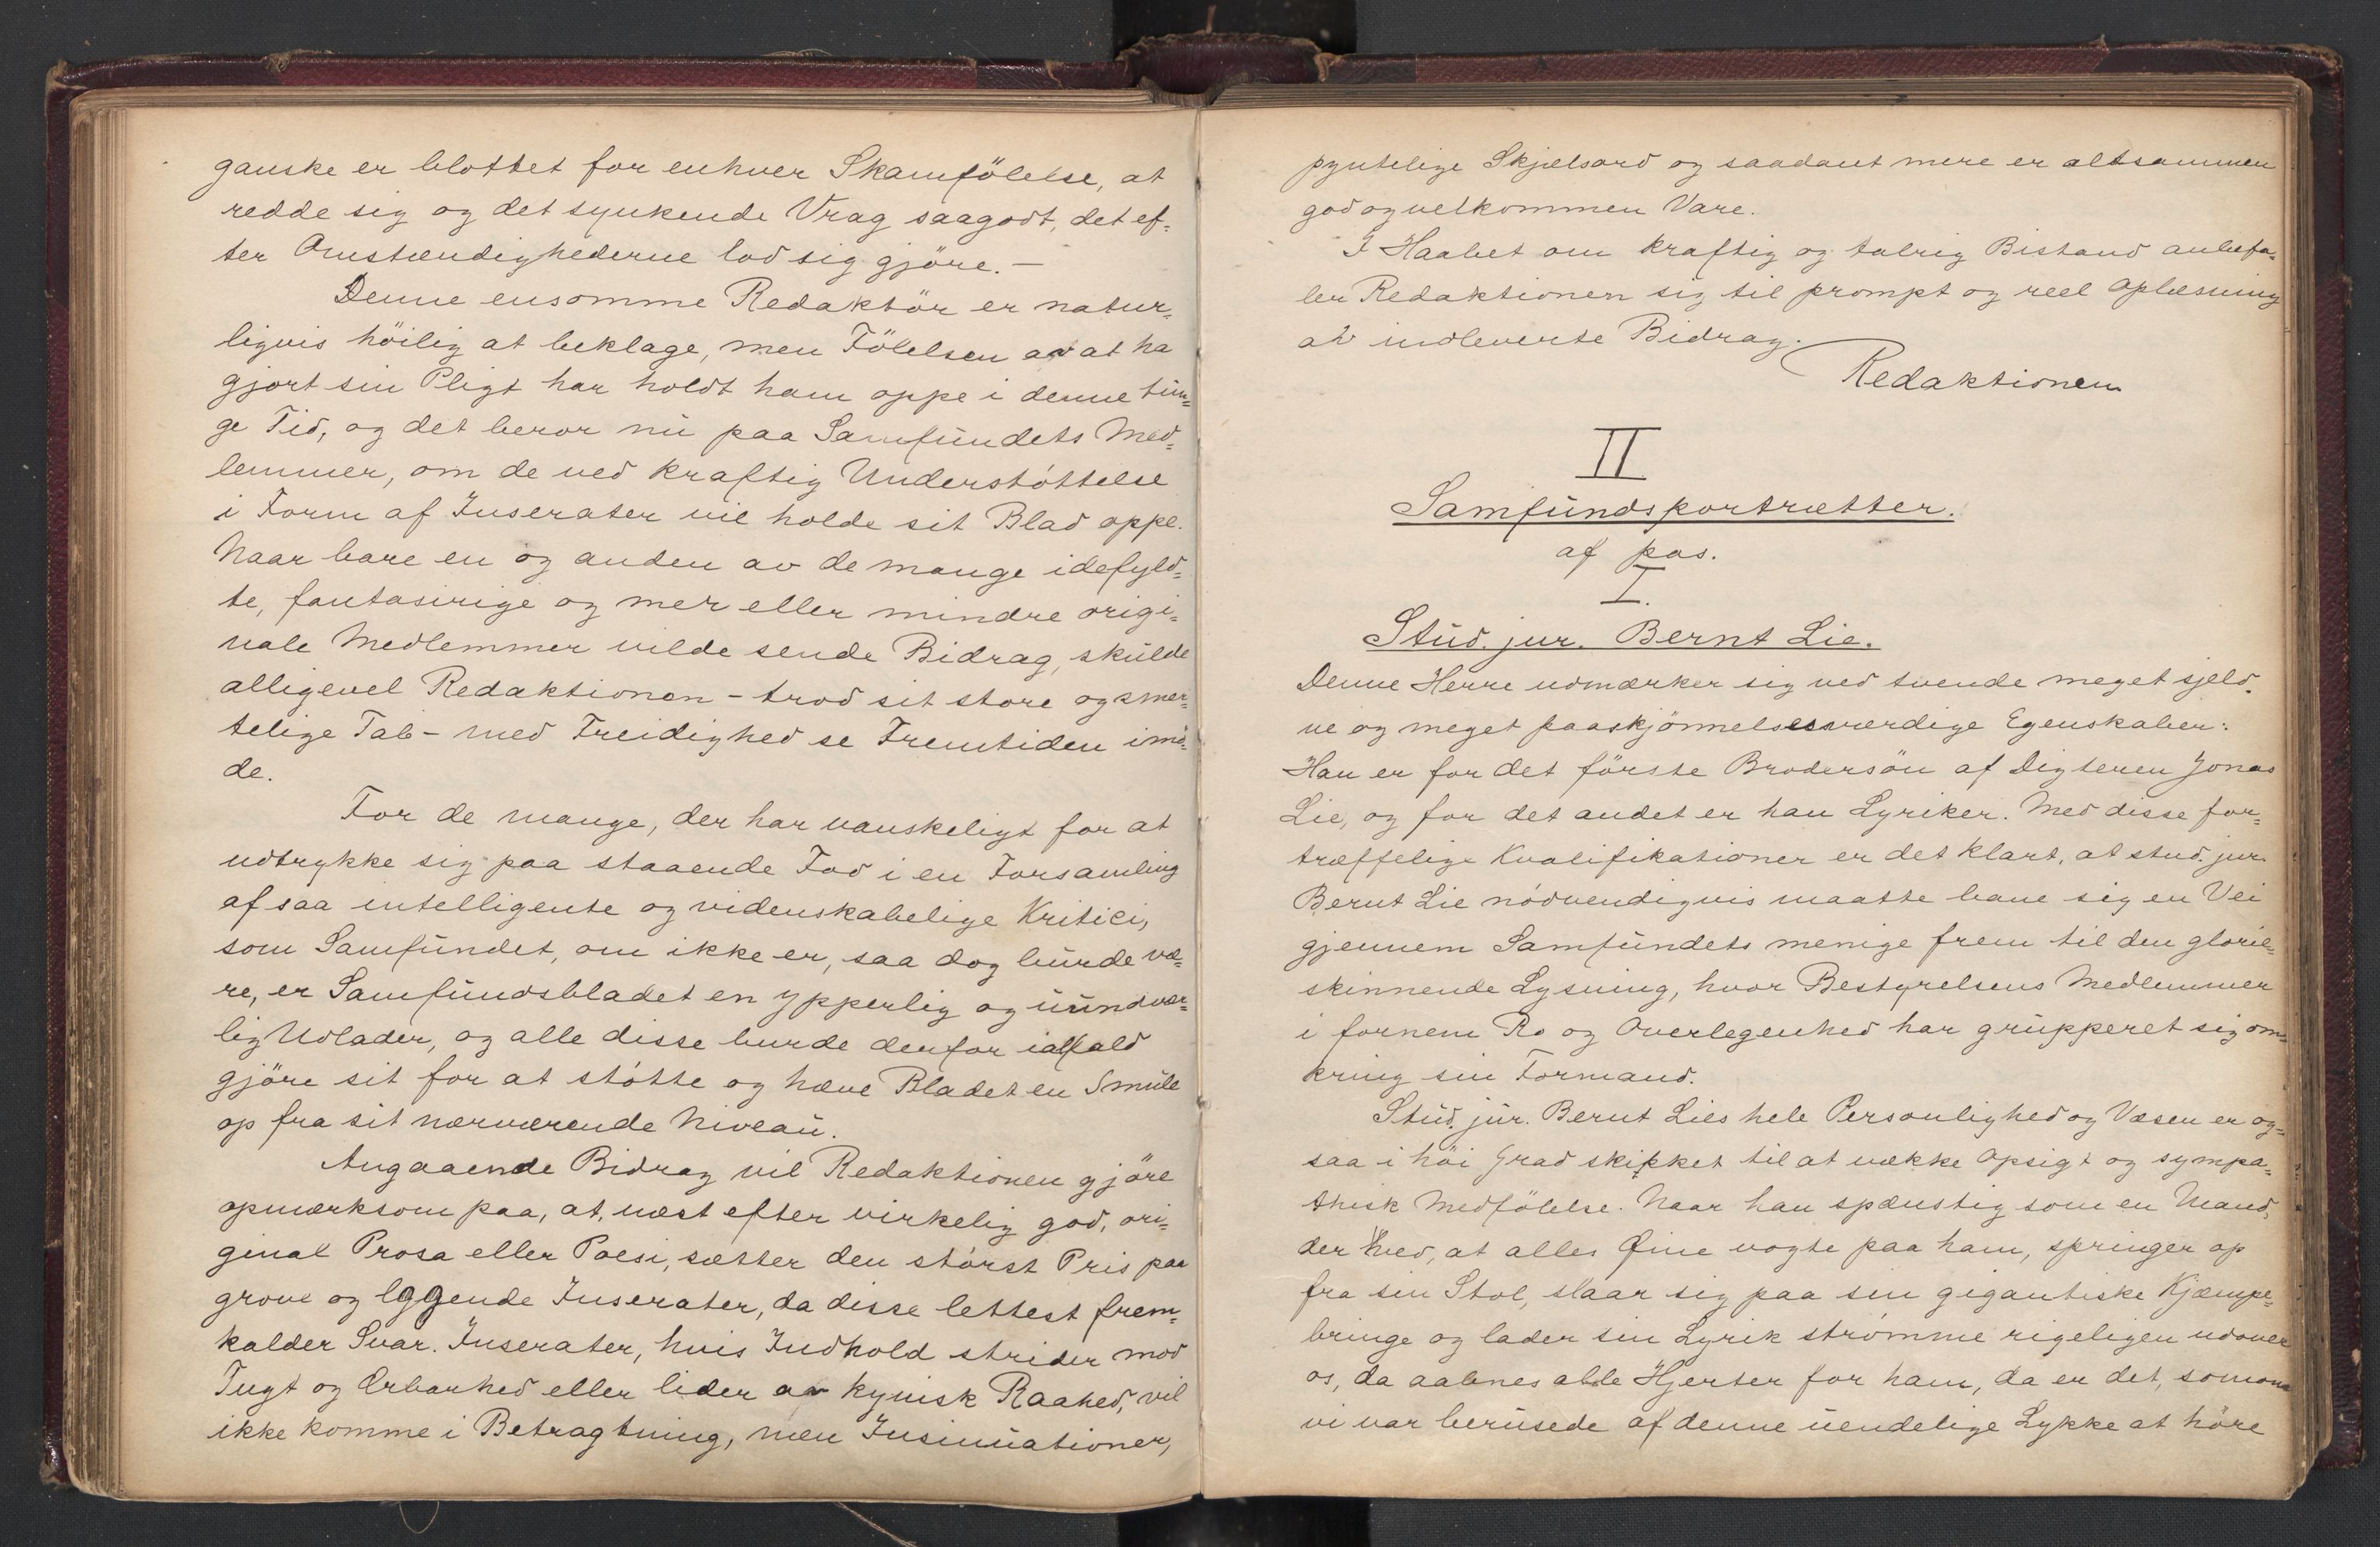 ganske er blottet for enhver Skamfölelse, at
redde sig og det synkende Vrag saagodt, det ef-
ter Omstændighederne lod sig gjöre. —
Denne ensomme Redaktör er natur-
ligvis höilig at beklage, men Fölelsen av at ha
gjort sin Pligt har holdt ham oppe i denne tun-
ge Tid, og det beror nu paa Samfundets Med-
lemmer, om de ved kraftig Understöttelse
i Form af Inserater vil holde sit Blad oppe.
Naar bare en og anden av de mange idefyld-
te, fantasirige og mer eller mindre origi-
nale Medlemmer vilde sende Bidrag, skulde
alligevel Redaktionen - trod sit store og smer-
telige Tab - med Freidighed se Fremtiden imö-
de.
For de mange, der har vanskeligt for at
udtrykke sig paa staaende Fod i en Forsamling
af saa intelligente og videnskabelige Kritici,
som Samfundet, om ikke er, saa dog burde væ-
re, er Samfundsbladet en ypperlig og uundvær-
lig Udlader, og alle disse burde derfor ialfald
gjöre sit for at stötte og hæve Bladet en Smule
op fra sit nærværende Niveau.
Angaaende Bidrag vil Redaktionen gjöre
opmærksom paa, at, næst efter virkelig god, ori-
ginal Prosa eller Poesi, sætter den störst Pris paa
grove og lggende Inserater, da disse lettest frem-
kalder Svar. Inserater, hvis Indhold strider mod
Tugt og Ærbarhed eller lider av kynisk Raahed, vil
ikke komme i Betragtning, men Insinuationer,
pyntelige Skjælsord og saadant mere er altsammen
god og velkommen Vare.
I Haabet om kraftig og talrig Bistand anbefa-
ler Redaktionen sig til prompt og reel Oplæsning
av indleverte Bidrag.
Redaktionen
II
Samfundsportrætter.
af pas.
I.
Stud. jur. Bernt Lie.
Denne Herre udmærker sig ved tvende meget sjeld-
ne og meget paaskjönnelsesværdige Egenskaber:
Han er for det förste Brodersön af Digteren Jonas
Lie, og for det andet er han Lyriker. Med disse for-
træffelige Kvalifikationer er det klart, at stud. jur.
Bernt Lie nödvendigvis maatte bane sig en Vei
gjennem Samfundets menige frem til den glorie-
skinnende Lysning, hvor Bestyrelsens Medlemmer
i fornem Ro og Overlegenhed har grupperet sig om-
kring sin Formand.
Stud. jur. Bernt Lies hele Personlighed og Væsen er og-
saa i höi Grad skikket til at vække Opsigt og sympa-
thisk Medfölelse. Naar han spænstig som en Mand,
der ved, at alles Øine vogte paa ham, springer op
fra sin Stol, slaar sig paa sin gigantiske Kjæmpe-
bringe og lader sin Lyrik strömme rigeligen udover
os, da aabnes alle Hjerter for ham, da er det, som om
vi var berusede af denne uendelige Lykke at höre